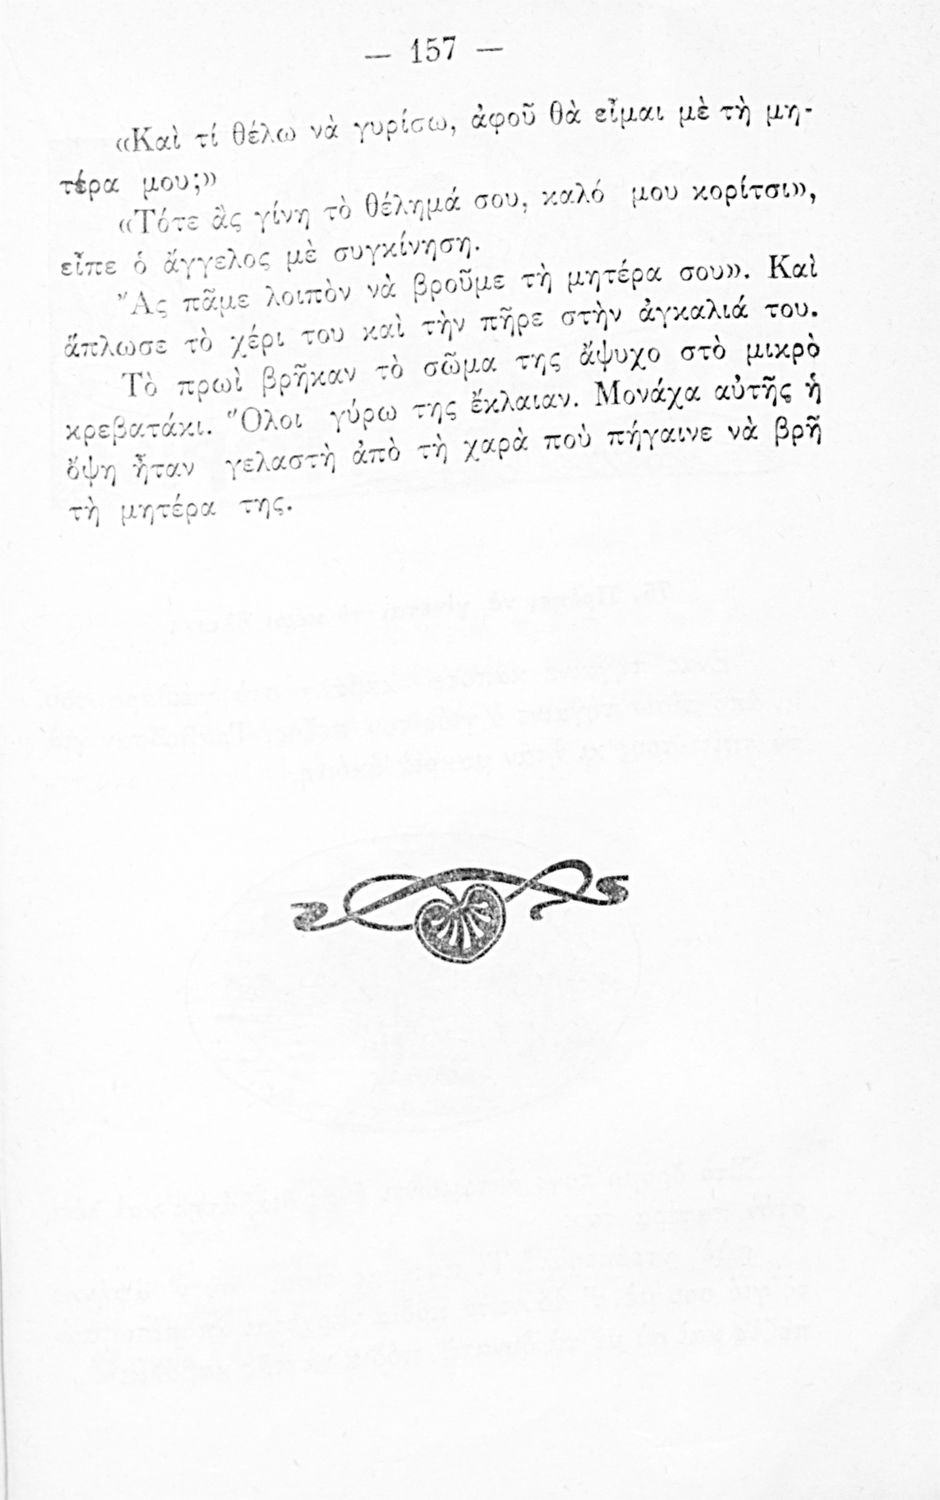 — 157 —
«Καὶ τί θέλω νὰ γυρίσω, ἀφοῦ θὰ εἶμαι μὲ τὴ μη-
τέρα μου;»
«Τότε ἂς γίνη τὸ θέλημά σου, καλό μου κορίτσι»,
εἶπε ὁ ἄγγελος μὲ συγκίνηση.
"Ας πᾶμε λοιπὸν νὰ βροῦμε τὴ μητέρα σου». Καὶ
ἅπλωσε τὸ χέρι του καὶ τὴν πῆρε στὴν ἀγκαλιά του.
Τὸ πρωῒ βρῆκαν τὸ σῶμα της ἄψυχο στὸ μικρὸ
κρεβατάκι. Ὅλοι γύρω της ἔκλαιαν. Μονάχα αὐτῆς ἡ
ὄψη ἦταν γελαστὴ ἀπὸ τὴ χαρὰ ποὺ πήγαινε νὰ βρῆ
τὴ μητέρα της.